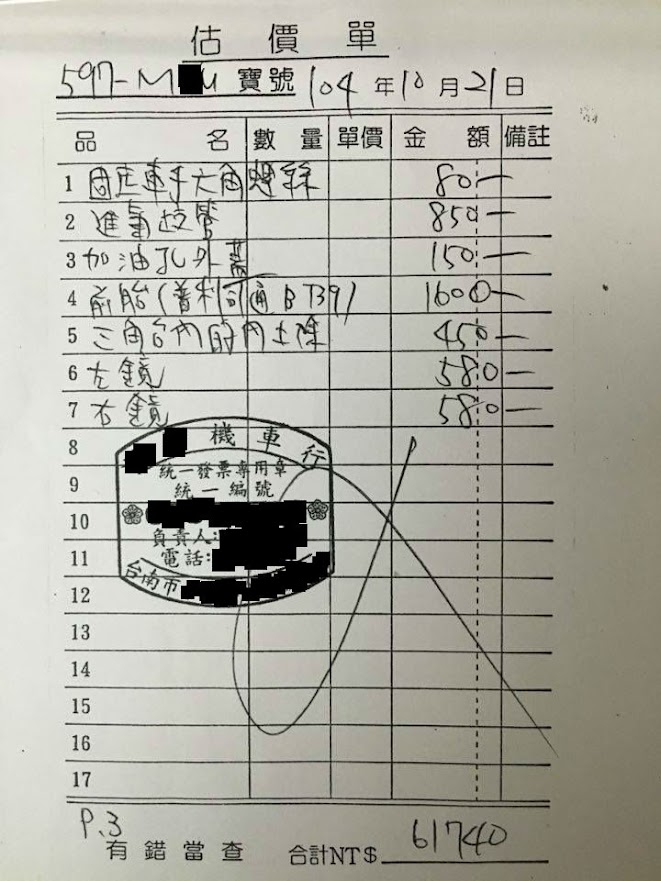 估價單
597-M U 寶號 104 年 10 月 21 日
品名 數量 單價 金額 備註
1 固定車手六角螺絲 80—
2 進氣歧管 850—
3 加油孔外蓋 150—
4 前胎(普利司通BT39) 1600—
5 三角台內前內土除 450—
6 左鏡 580—
7 右鏡 580—
8
機車行
9 統一發票專用章
統一編號
10
負責人:
11 電話:
台南市
12
13
14
15
16
17
P.3
有錯當查 合計NT$ 61740